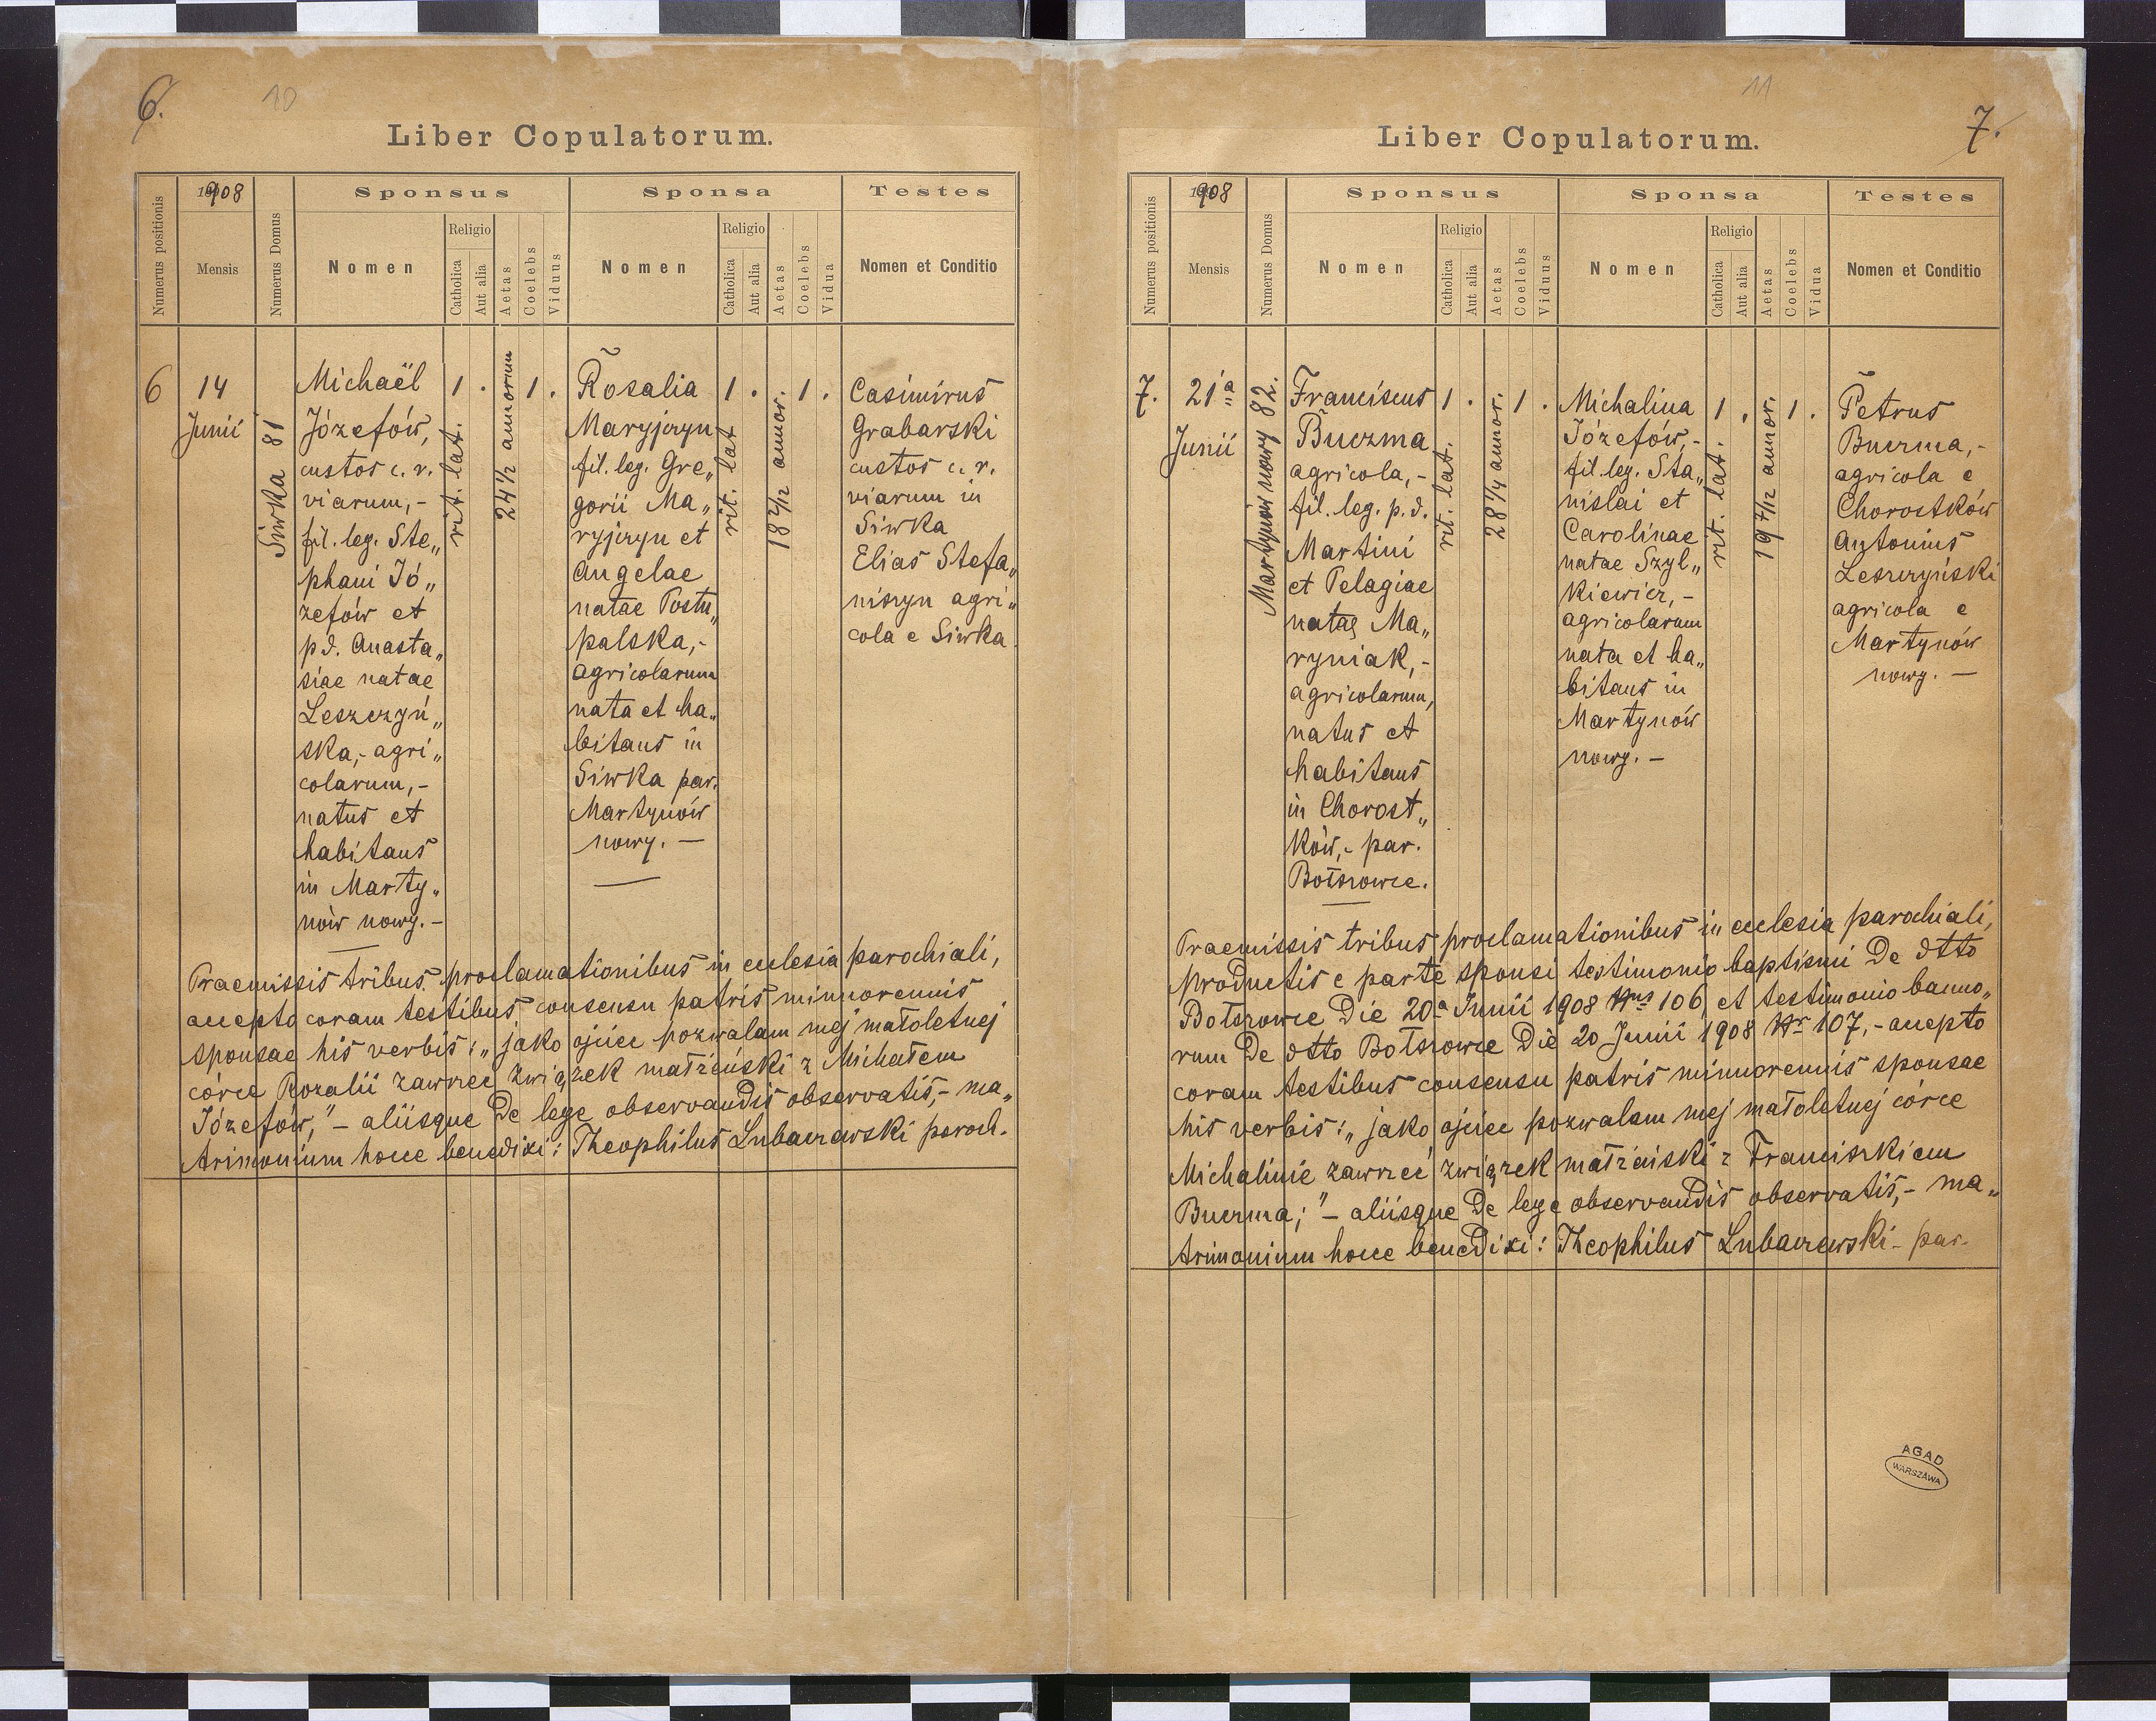 6.
10
Liber Copulatorum.
Numerus positionis
1908
Mensis
Numerus Domus
Sponsus
Nomen
Religio
Catholica
Aut alia
Aetas
Coelebs
Viduus
Sponsa
Nomen
Religio
Catholica
Aut alia
Aetas
Coelebs
Vidua
Testes
Nomen et Conditio
6
14
Junii
Siwka 81
Michaël
Józefów,
custos c. r.
viarum,-
fil. leg. Ste„
phani Jó„
zefów et
p.d. Anasta„
siae natae
Leszczyń„
ska,- agri„
colarum,-
natus et
habitans
in Marty„
nów nowy.-
1 .
rit. lat.
24 1/2 annorum
1 .
Rosalia
Maryjczyn
fil. leg. Gre„
gorii Ma„
ryjczyn et
Angelae
natae Postu„
palska,-
agricolarum
nata et ha„
bitans in
Siwka par.
Martynów
nowy. —
1 .
rit. lat
18 2/12 annor.
1 .
Casimirus
Grabarski
custos c. r.
viarum in
Siwka
Elias Stefa„
niszyn agri„
cola e Siwka
Praemissis tribus proclamationibus in ecclesia parochiali,
accepto coram testibus consensu patris minorennis
sponsae his verbis: „jako ojciec pozwalam mej małoletniej
córce Rozalii zawrzeć związek małżeński z Michałem
Józefów," – aliisque de lege observandis observatis,- ma„
trimonium hocce benedixi: Theophilus Lubaczewski paroch.
11
7.
Liber Copulatorum.
Numerus positionis
1908
Mensis
Numerus Domus
Sponsus
Nomen
Religio
Catholica
Aut alia
Aetas
Coelebs
Viduus
Sponsa
Nomen
Religio
Catholica
Aut alia
Aetas
Coelebs
Vidua
Testes
Nomen et Conditio
7.
21a
Junii
Martynów nowy 82.
Franciscus
Buczma
agricola,-
fil. leg. p. d.
Martini
et Pelagiae
natae Ma„
ryniak,-
agricolarum,
natus et
habitans
in Chorost„
ków,- par.
Bołszowce.
1 .
rit. lat.
28 1/4 annor.
1 .
Michalina
Józefów,-
fil. leg. Sta„
nislai et
Carolinae
natae Szyl„
kiewicz,-
agricolarum
nata et ha„
bitans in
Martynów
nowy. –
1 .
rit. lat.
19 7/12 annor.
1 .
Petrus
Buczma,-
agricola e
Chorostków
Antonius
Leszczyński
agricola e
Martynów
nowy. —
Praemissis tribus proclamationibus in ecclesia parochiali,
productis e parte sponsi testimonio baptismi de dtto
Bołszowce die 20a Junii 1908 Nrus 106, et testimonio banno„
rum de dtto Bołszowce die 20 Junii 1908 Nr 107,- accepto
coram testibus consensu patris minorennis sponsae
his verbis: „jako ojciec pozwalam mej małoletniej córce
Michalinie zawrzeć związek małżeński z Franciszkiem
Buczma;" – aliisque de lege observandis observatis,- ma„
trimonium hocce benedixi: Theophilus Lubaczewski - par.
AGAD
WARSZAWA